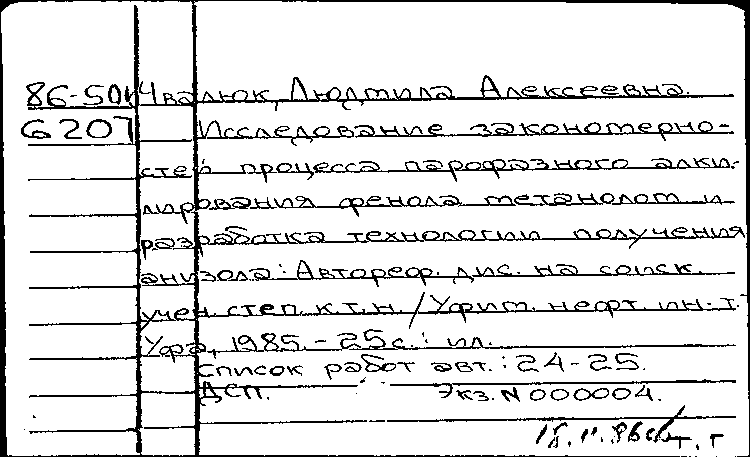 86-501 Чвалюк, Людмила Алексеевна.
6207 Исследование закономерно-
стей процесса парофазного алки-
лирования фенола метанолом и
разработка технологии получения
анизола: Автореф. дис. на соиск.
учен. степ. к.т.н. / Уфим. нефт. ин-т.-
Уфа, 1985.-25с.: ил.
Список работ авт.: 24-25.
ДСП. Экз. N 000004.
18.11.86